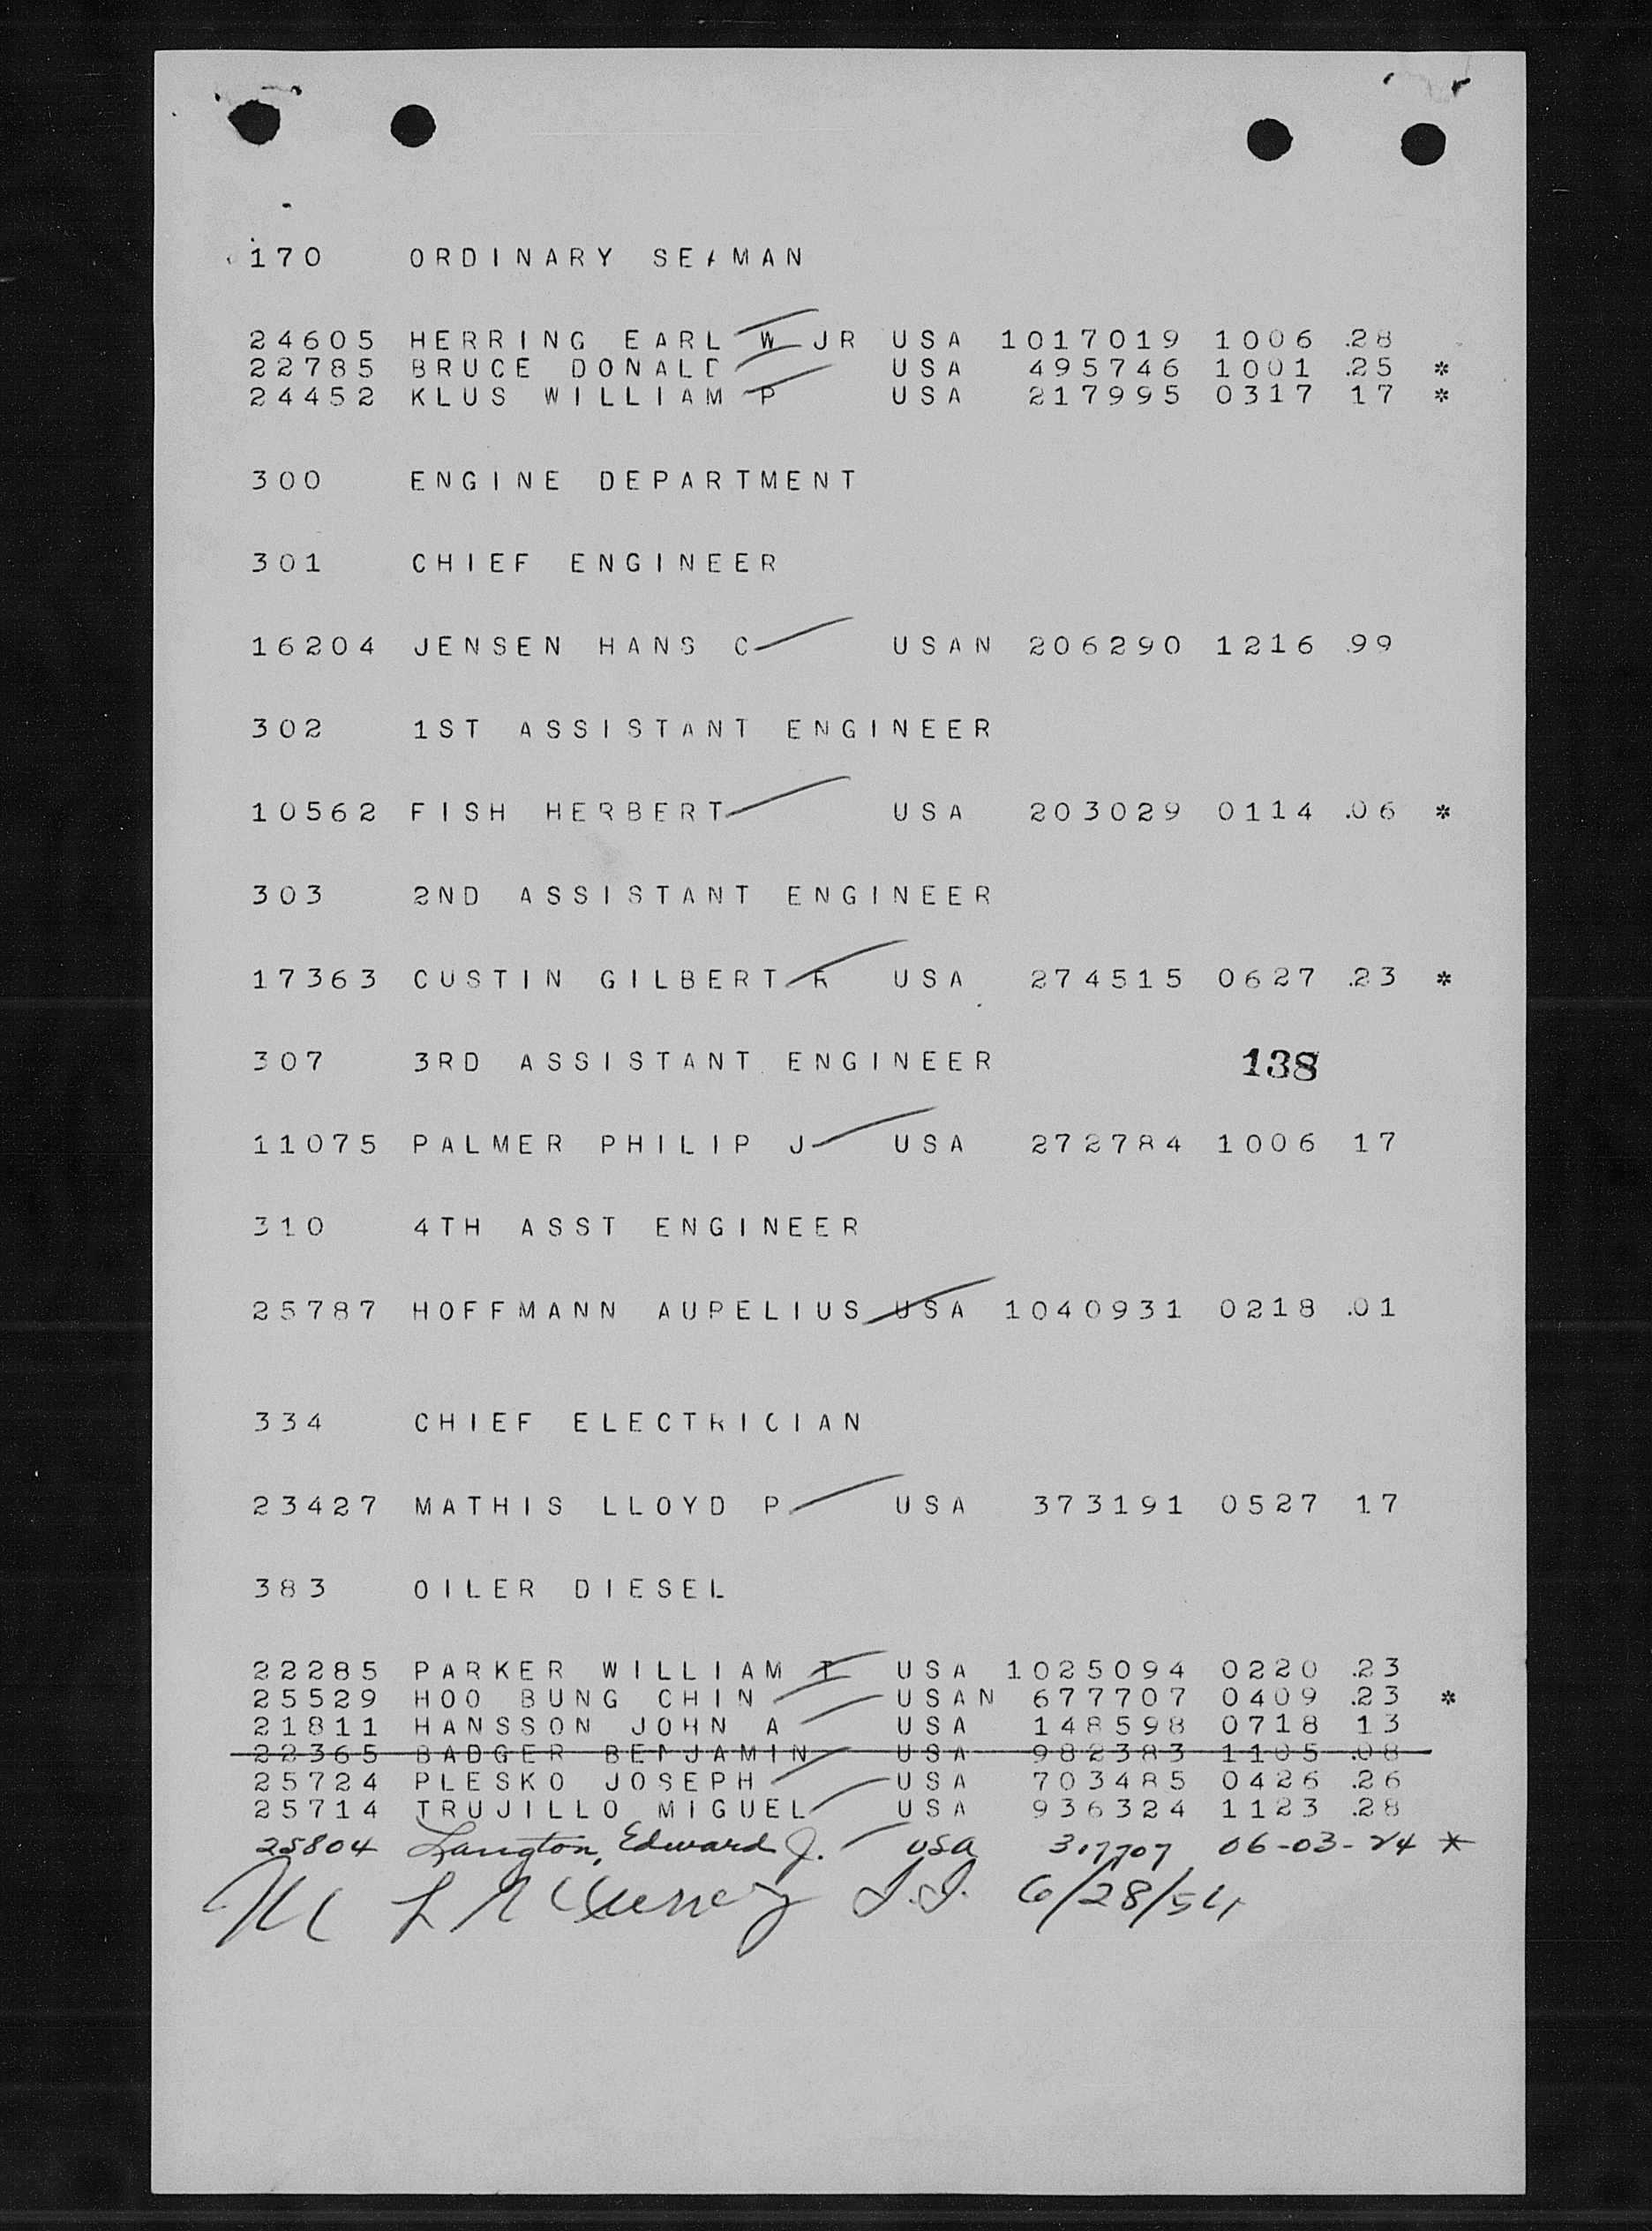 170 ORDINARY SEAMAN
24605 HERRING EARL W JR USA 1017019 1006 .28
22785 BRUCE DONALD USA 495746 1001 .25 *
24452 KLUS WILLIAM P USA 217995 0317 17 *
300 ENGINE DEPARTMENT
301 CHIEF ENGINEER
16204 JENSEN HANS C USAN 206290 1216 .99
302 1ST ASSISTANT ENGINEER
10562 FISH HERBERT USA 203029 0114 .06 *
303 2ND ASSISTANT ENGINEER
17363 CUSTIN GILBERT R USA 274515 0627 .23 *
307 3RD ASSISTANT ENGINEER 138
11075 PALMER PHILIP J USA 272784 1006 17
310 4TH ASST ENGINEER
25787 HOFFMANN AUPELIUS USA 1040931 0218 .01
334 CHIEF ELECTRICIAN
23427 MATHIS LLOYD P USA 373191 0527 17
383 OILER DIESEL
22285 PARKER WILLIAM USA 1025094 0220 .23
25529 HOO BUNG CHIN USAN 677707 0409 .23 *
21811 HANSSON JOHN A USA 148598 0718 13
22365 BADGER BENJAMIN USA 982383 1105 .08
25724 PLESKO JOSEPH USA 703485 0426 .26
25714 TRUJILLO MIGUEL USA 936324 1123 .28
25804 Langton, Edward J. USA 317707 06-03-24 *
6/28/54